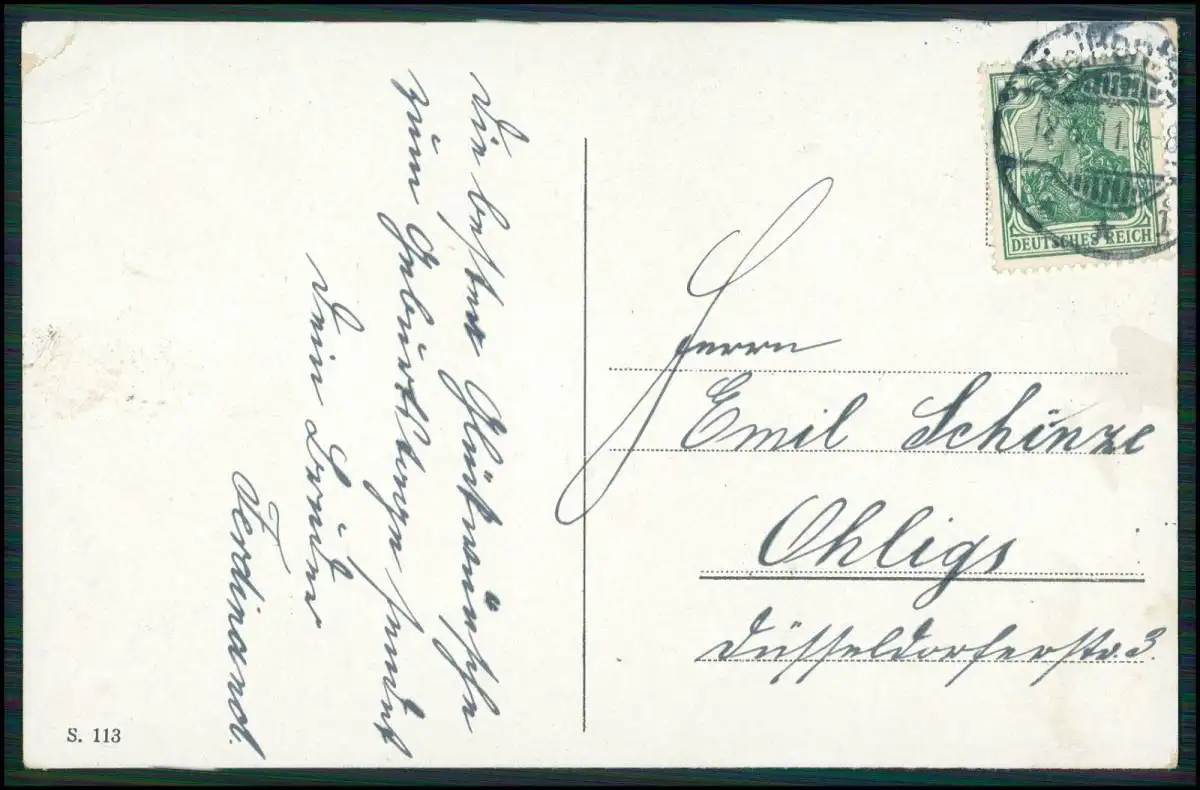 Die besten Glückwünsche
zum Geburtstage sendet
Dein Bruder
Ferdinand.
DEUTSCHES REICH
Herrn
Emil Schinze
Ohligs
Düsseldorferstr. 3.
S. 113